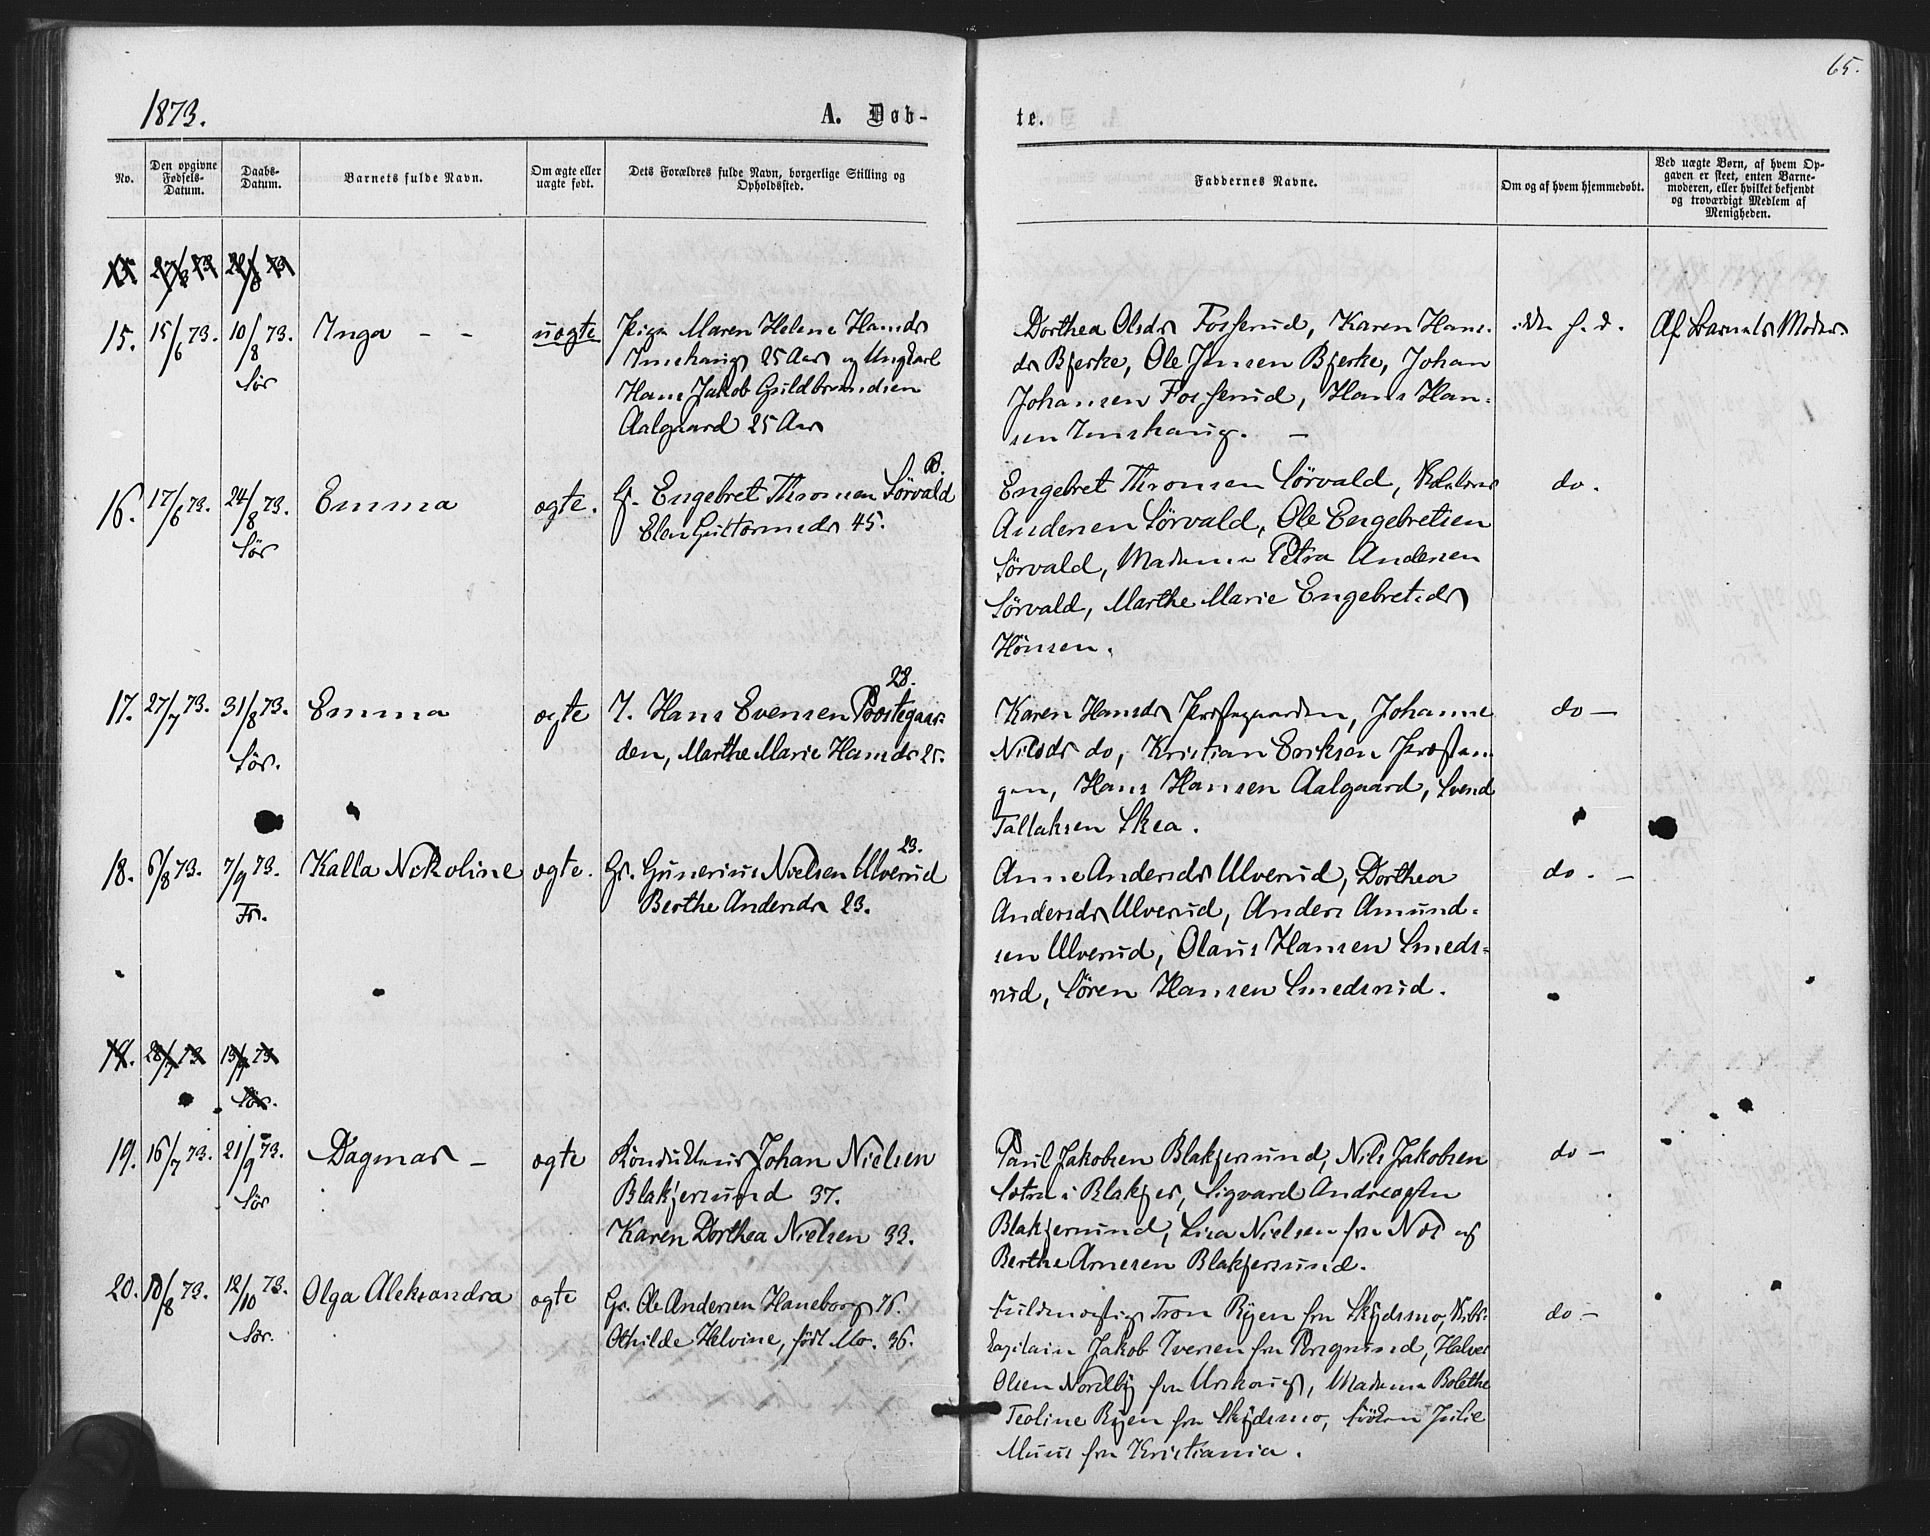 65.
1873.
A. Døb-
te.
No.
Den opgivne Fødsels-Datum.
Daabs-Datum.
Barnets fulde Navn.
Om ægte eller uægte født.
Dets Forældres fulde Navn, borgerlige Stilling og Opholdssted.
Faddernes Navne.
Om og af hvem hjemmedøbt.
Ved uægte Børn, af hvem Op-
gaven er skeet, enten Barne-
moderen, eller hvilket bekjendt
og troværdigt Medlem af
Menigheden.
15. 15/6 73. 10/8 73. Inga – – uægte Pige Maren Helene Hansdr
Sør
25 Aar og Ungkarl
Hans Jakob Guldbrandsen
Aalgaard 25 Aar
Dorthea Olsdr Fosserud, Karen Hans-
dr Bjerke, Ole Jensen Bjerke, Johan
Johansen Fosserud, Hans Han-
sen –
Af Barnets Moder.
16. 17/6 73. 24/8 73. Emma ægte. G. Engebret Thronsen Sörvald
Sør
Elen Guttormsdr 45.
Engebret Thronsen Sörvald,
Andersen Sörvald, Ole Engebretsen
Sörvald, Madame Petra Andersen
Sörvald, Marthe Marie Engebretsdr
Hönsen.
do.
28.
17. 27/7 73. 31/8 73. Emma ægte I. Hans Evensen Præstegaar-
Sør.
den, Marthe Marie Hansdr 25.
Karen Hansdr Præstegaarden, Johanne
Nilsdr do, Kristian Eriksen
Hans Hansen Aalgaard, Svend
Tallaksen Skea.
do –
23.
18. 6/8 73. 7/9 73. Kalla Nikoline ægte. Gs. Gunerius Nielsen Ulverud
Fr.
Berthe Andersdr 23.
Anne Andersdr Ulverud, Dorthea
Andersdr Ulverud, Anders Amund-
sen Ulverud, Olaus Hansen Smeds-
rud, Sören Hansen Smedsrud.
do. –
19. 28/7 73 13/9 73
Sør.
19. 16/7 73. 21/9 73. Dagmar – ægte Kondukteur Johan Nielsen
Sør
Blakjersund 37.
Karen Dorthea Nielsen 33.
Paul Jakobsen Blakjersund, Nils Jakobsen
Sætra i Blakjer, Sigvard Andreasen
Blakjersund, Lisa Nielsen fra Næs og
Berthe Arnesen Blakjersund.
do –
20. 10/8 73. 12/10 73. Olga Aleksandra ægte Gs. Ole Andersen Haneborg 76.
Sør.
Othilde Helvine, født Mo. 36.
Fuldmægtig Tron Ryen fra Skydsmo, Skibs-
kapitain Jakob Iversen fra Porsgrund, Halvor
Olsen Nordby fra Urskoug, Madame Bolethe
Teoline Ryen fra Skydsmo, Fröken Julie
Muus fra Kristiania.
do –